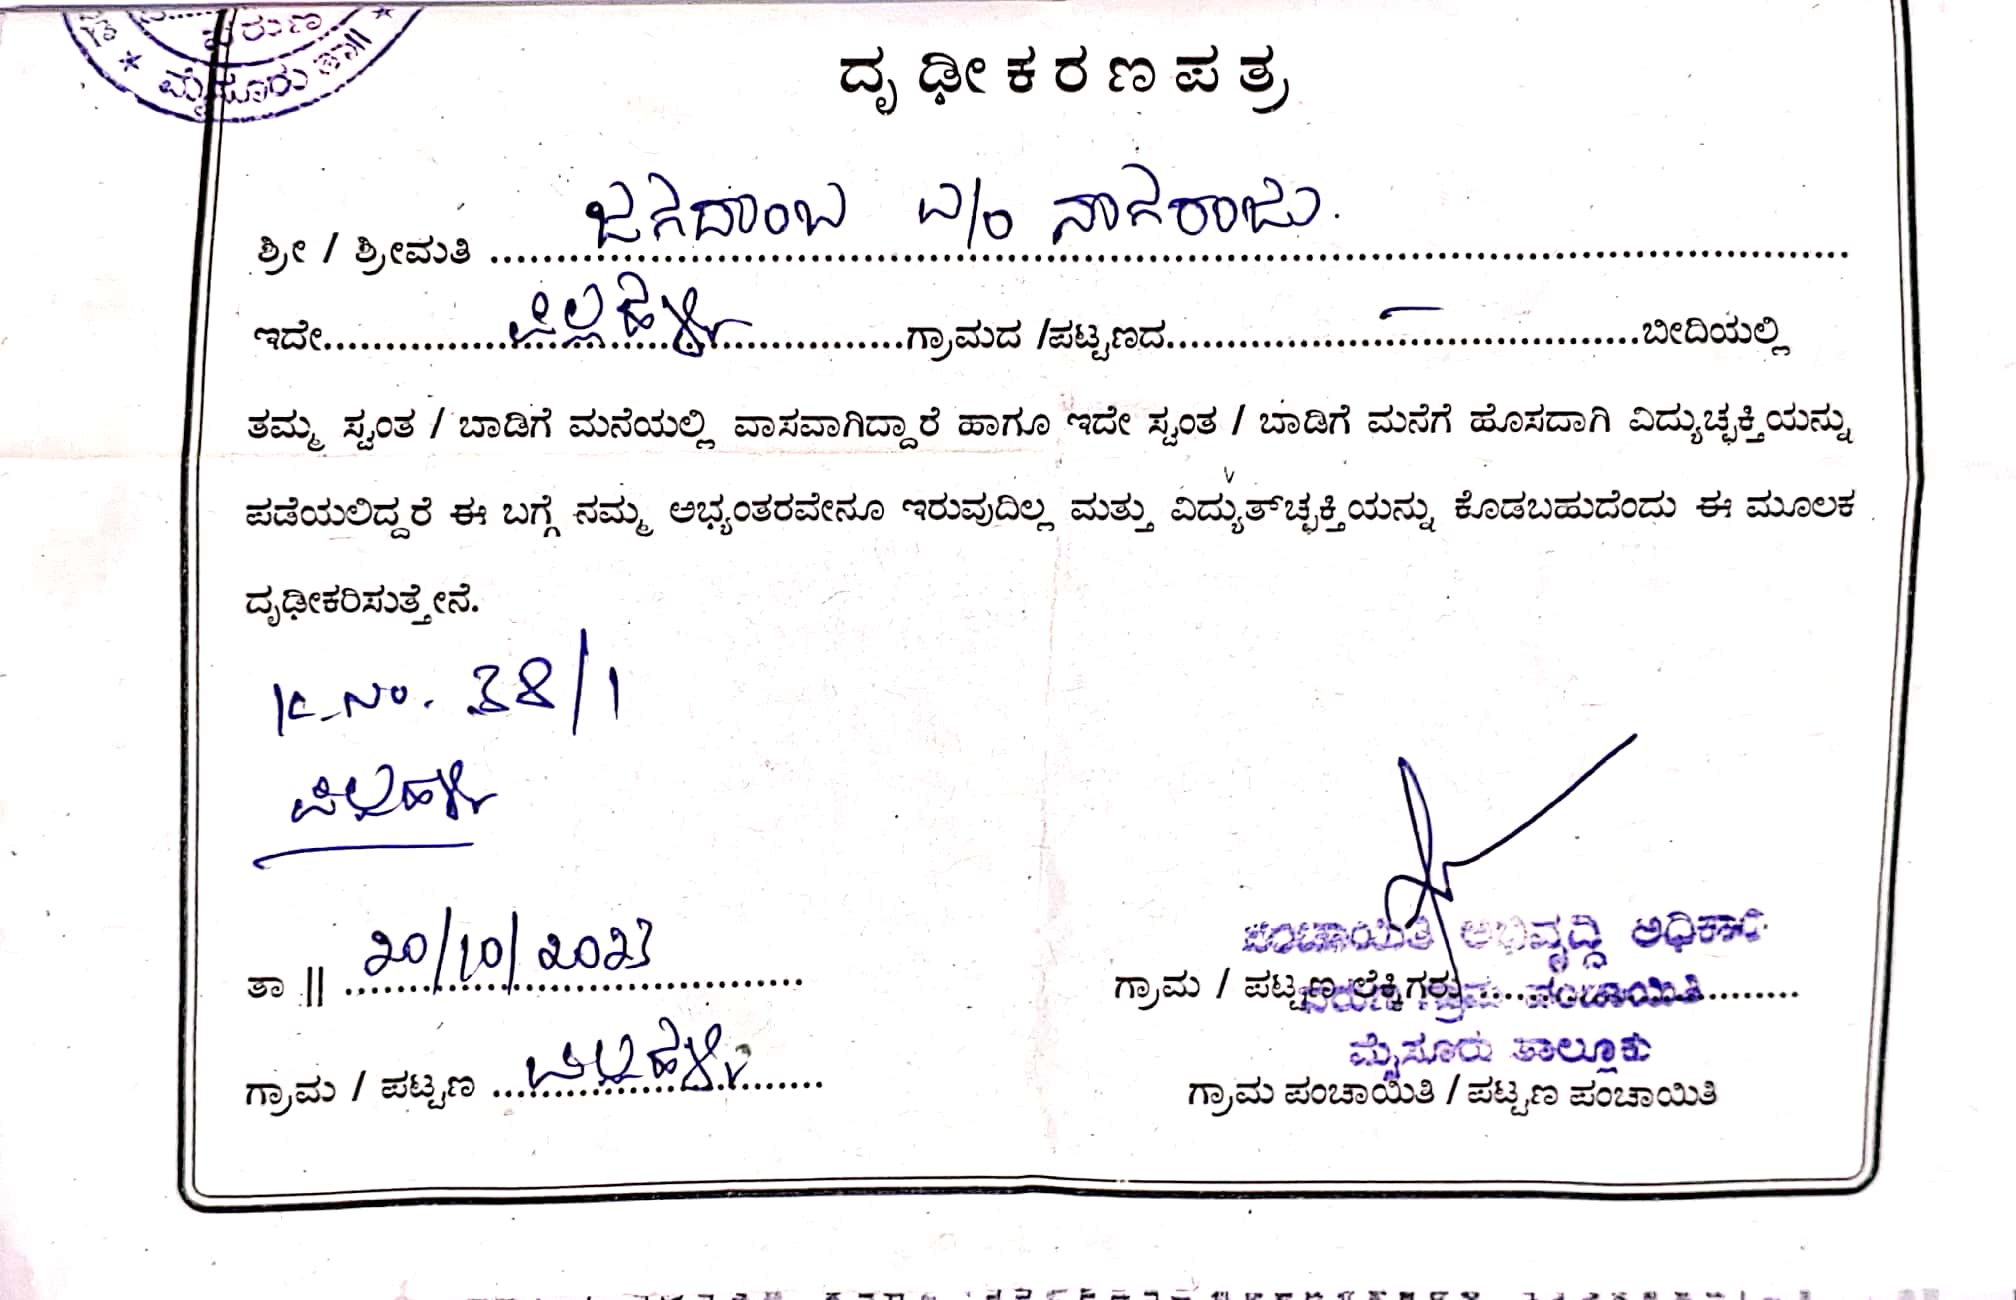 ವರುಣ
ಮೈಸೂರು ತಾ||
ದೃಢೀಕರಣಪತ್ರ
ಜಗದಾಂಬ ಬಿ/ಂ ನಾಗರಾಜು.
ಶ್ರೀ / ಶ್ರೀಮತಿ
ಇದೇ ಪಿಲ್ಲಹಳ್ಳಿ ಗ್ರಾಮದ /ಪಟ್ಟಣದ — ಬೀದಿಯಲ್ಲಿ
ತಮ್ಮ ಸ್ವಂತ / ಬಾಡಿಗೆ ಮನೆಯಲ್ಲಿ ವಾಸವಾಗಿದ್ದಾರೆ ಹಾಗೂ ಇದೇ ಸ್ವಂತ / ಬಾಡಿಗೆ ಮನೆಗೆ ಹೊಸದಾಗಿ ವಿದ್ಯುಚ್ಛಕ್ತಿಯನ್ನು
ಪಡೆಯಲಿದ್ದರೆ ಈ ಬಗ್ಗೆ ನಮ್ಮ ಅಭ್ಯಂತರವೇನೂ ಇರುವುದಿಲ್ಲ ಮತ್ತು ವಿದ್ಯುತ್‌ಚ್ಛಕ್ತಿಯನ್ನು ಕೊಡಬಹುದೆಂದು ಈ ಮೂಲಕ
ದೃಢೀಕರಿಸುತ್ತೇನೆ.
K.No. 38/1
ಪಿಲ್ಲಹಳ್ಳಿ
ತಾ || 20/10/2023
ಪಂಚಾಯಿತಿ ಅಭಿವೃದ್ಧಿ ಅಧಿಕಾರಿ
ಗ್ರಾಮ / ಪಟ್ಟಣ ಲೆಕ್ಕಿಗರು
ವರುಣ ಗ್ರಾಮ ಪಂಚಾಯಿತಿ
ಮೈಸೂರು ತಾಲ್ಲೂಕು
ಗ್ರಾಮ / ಪಟ್ಟಣ ಪಿಲ್ಲಹಳ್ಳಿ
ಗ್ರಾಮ ಪಂಚಾಯಿತಿ / ಪಟ್ಟಣ ಪಂಚಾಯಿತಿ